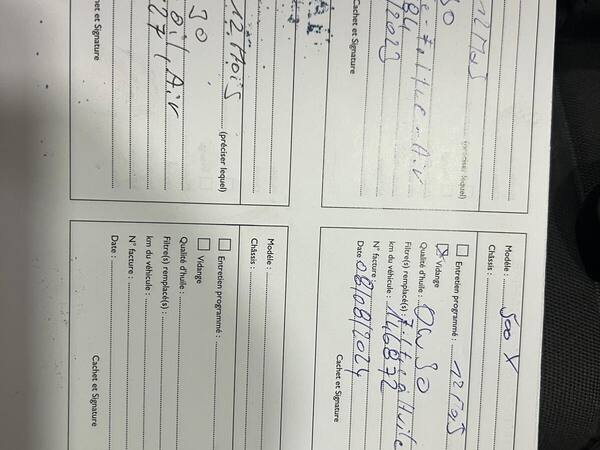 12 Mois
(préciser lequel)
30
Air
2023
Cachet et Signature
12 Mois
(préciser lequel)
30
oil, Air
27,
Cachet et Signature
Modèle : 500 X
Châssis :
Entretien programmé : 12 Mois
Vidange
Qualité d'huile : 0W30
Filtre(s) remplacé(s) : Filtre à Huile
km du véhicule : 146872
N° facture :
Date 08/08/2024
Cachet et Signature
Modèle :
Châssis :
Entretien programmé :
Vidange
Qualité d'huile :
Filtre(s) remplacé(s) :
km du véhicule :
N° facture :
Date :
Cachet et Signature